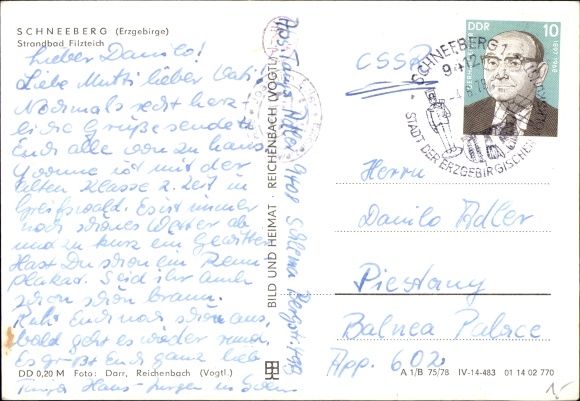 SCHNEEBERG (Erzgebirge)
Strandbad Filzteich
Lieber Danilo!
Liebe Mutti lieber Vati!
Nochmals recht herz-
liche Grüße sendet
Euch alle von zu Haus.
Yvonne ist mit der
alten Klasse z. Zeit in
Greifswald. Es ist immer
noch schönes Wetter ab
und zu kurz ein Gewitter
Hast Du schon ein Renn-
plakat. Seid ihr auch
schon schön braun.
Ruht Euch noch schön aus,
bald geht es wieder rund.
Es grüßt Euch ganz lieb
Hans-Jürgen
DD 0,20 M Foto: Darr, Reichenbach (Vogtl.)
BILD UND HEIMAT · REICHENBACH (VOGTL)
Abs. Adler 9408 Schlema Bergstr.
ČSSR
SCHNEEBERG 1
STADT DER ERZGEBIRGISCHEN
DDR 10
Herrn
Danilo Adler
Piestany
Balnea Palace
App. 602
A 1/B 75/78 IV-14-483 01 14 02 770